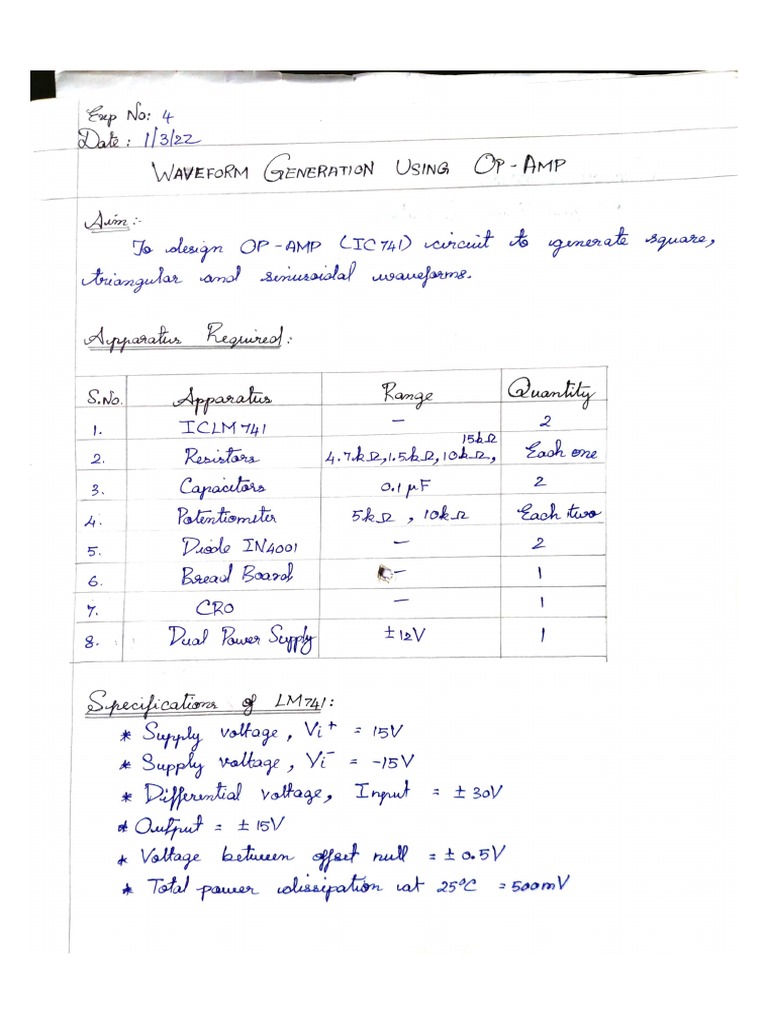 Exp No: 4
Date: 1/3/22
WAVEFORM GENERATION USING OP-AMP
Aim:-
To design OP-AMP (IC741) circuit to generate square,
triangular and sinusoidal waveforms.
Apparatus Required:
S.No. Apparatus Range Quantity
1. ICLM741 – 2
2. Resistors 4.7kΩ, 1.5kΩ, 10kΩ, 15kΩ Each one
3. Capacitors 0.1 μF 2
4. Potentiometer 5kΩ, 10kΩ Each two
5. Diode IN4001 – 2
6. Bread Board – 1
7. CRO – 1
8. Dual Power Supply ±12V 1
Specifications of LM741:
* Supply voltage, Vi⁺ = 15V
* Supply voltage, Vi⁻ = -15V
* Differential voltage, Input = ± 30V
* Output = ± 15V
* Voltage between offset null = ± 0.5V
* Total power dissipation at 25°C = 500mV